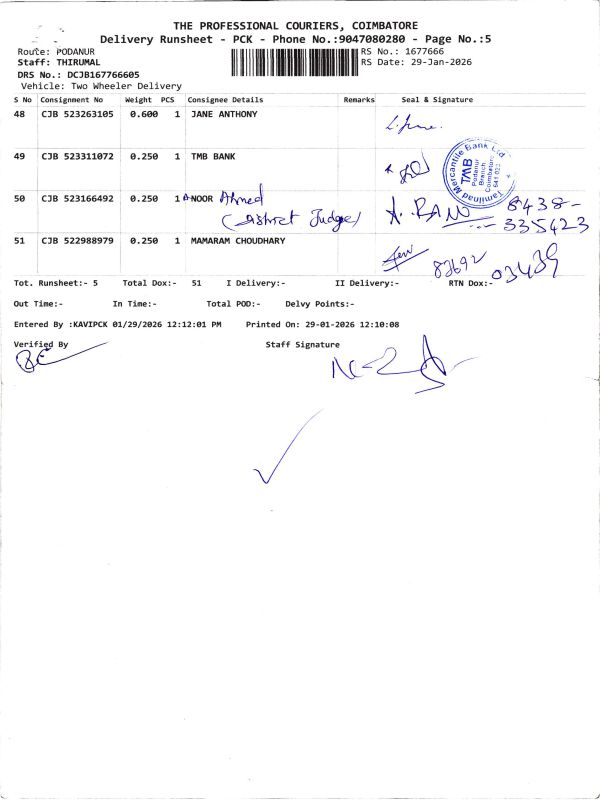 THE PROFESSIONAL COURIERS, COIMBATORE
Delivery Runsheet - PCK - Phone No.:9047080280 - Page No.:5
Route: PODANUR
RS No.: 1677666
Staff: THIRUMAL
RS Date: 29-Jan-2026
DRS No.: DCJB167766605
Vehicle: Two Wheeler Delivery
S No Consignment No Weight PCS Consignee Details Remarks Seal & Signature
48 CJB 523263105 0.600 1 JANE ANTHONY
49 CJB 523311072 0.250 1 TMB BANK
Tamilnad Mercantile Bank Ltd
TMB
Podanur
Branch
Coimbatore
641 023
50 CJB 523166492 0.250 1 A-NOOR Ahmed
(District Judge)
A. RAM 8438-
335423
51 CJB 522988979 0.250 1 MAMARAM CHOUDHARY
82692 03439
Tot. Runsheet:- 5 Total Dox:- 51 I Delivery:- II Delivery:- RTN Dox:-
Out Time:- In Time:- Total POD:- Delvy Points:-
Entered By :KAVIPCK 01/29/2026 12:12:01 PM Printed On: 29-01-2026 12:10:08
Verified By Staff Signature